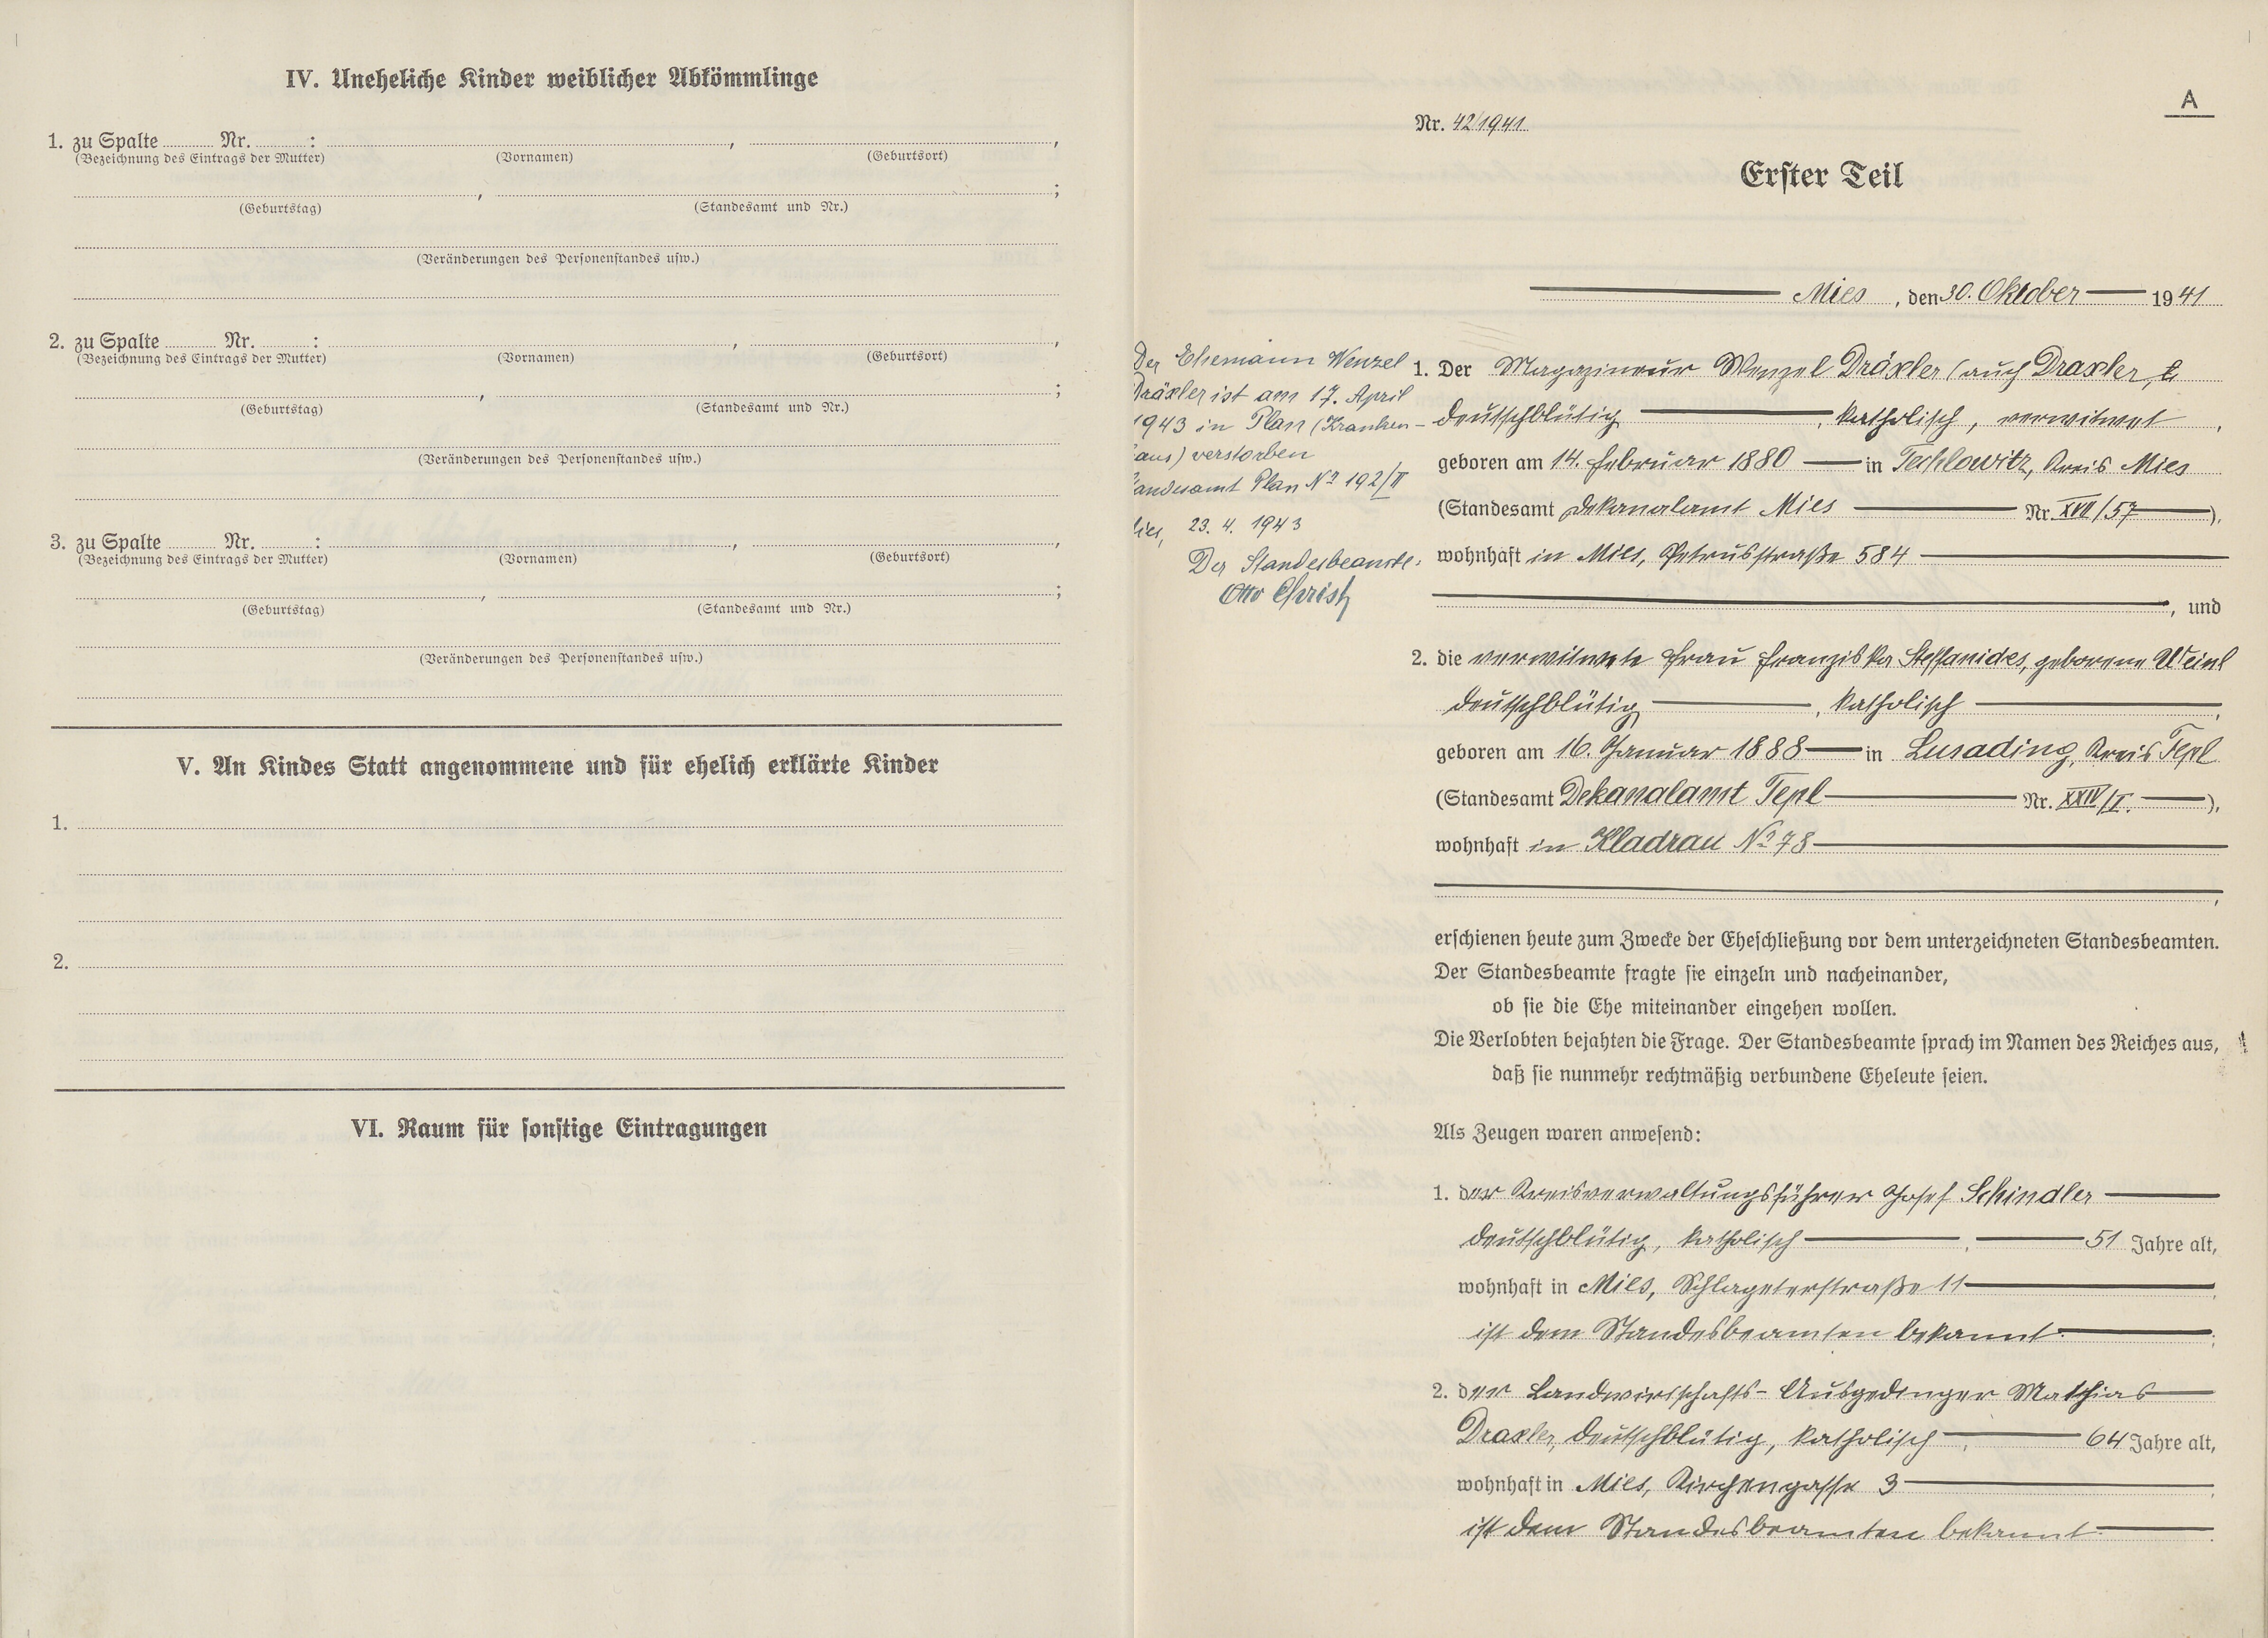 IV. Uneheliche Kinder weiblicher Abkömmlinge
1. zu Spalte Nr. : , ,
(Bezeichnung des Eintrags der Mutter) (Vornamen) (Geburtsort)
, ;
(Geburtstag) (Standesamt und Nr.)
(Veränderungen des Personenstandes usw.)
2. zu Spalte Nr. : , ,
(Bezeichnung des Eintrags der Mutter) (Vornamen) (Geburtsort)
, ;
(Geburtstag) (Standesamt und Nr.)
(Veränderungen des Personenstandes usw.)
3. zu Spalte Nr. : , ,
(Bezeichnung des Eintrags der Mutter) (Vornamen) (Geburtsort)
, ;
(Geburtstag) (Standesamt und Nr.)
(Veränderungen des Personenstandes usw.)
V. An Kindes Statt angenommene und für ehelich erklärte Kinder
1.
2.
VI. Raum für sonstige Eintragungen
A
Nr. 42/1941
Erster Teil
Mies, den 30. Oktober 1941
Der Ehemann Wenzel
Dräxler ist am 17. April
1943 in Plan (Kranken-
aus) verstorben
andesamt Plan No 192/II
ies, 23. 4. 1943
Der Standesbeamte:
Otto Christ
1. Der Magazineur Wenzel Dräxler (auch Draxler,
deutschblütig, katholisch, verwitwet,
geboren am 14. Februar 1880 in Techlowitz, Kreis Mies
(Standesamt Dekanalamt Mies Nr. XVII/57),
wohnhaft in Mies, Petrusstraße 584
, und
2. die verwitwete Frau Franziska Steffanides, geborene Weinl
deutschblütig, katholisch,
geboren am 16. Januar 1888 in Lusading, Kreis Tepl
(Standesamt Dekanalamt Tepl Nr. XXIV/I.),
wohnhaft in Kladrau No 78
,
erschienen heute zum Zwecke der Eheschließung vor dem unterzeichneten Standesbeamten.
Der Standesbeamte fragte sie einzeln und nacheinander,
ob sie die Ehe miteinander eingehen wollen.
Die Verlobten bejahten die Frage. Der Standesbeamte sprach im Namen des Reiches aus,
daß sie nunmehr rechtmäßig verbundene Eheleute seien.
Als Zeugen waren anwesend:
1. der Kreisverwaltungsführer Josef Schindler
deutschblütig, katholisch, 51 Jahre alt,
wohnhaft in Mies, Schlageterstraße 11,
ist dem Standesbeamten bekannt.;
2. der Landwirtschafts-Ausgedinger Matthias
Draxler, deutschblütig, katholisch, 64 Jahre alt,
wohnhaft in Mies, Kirchengasse 3,
ist dem Standesbeamten bekannt.